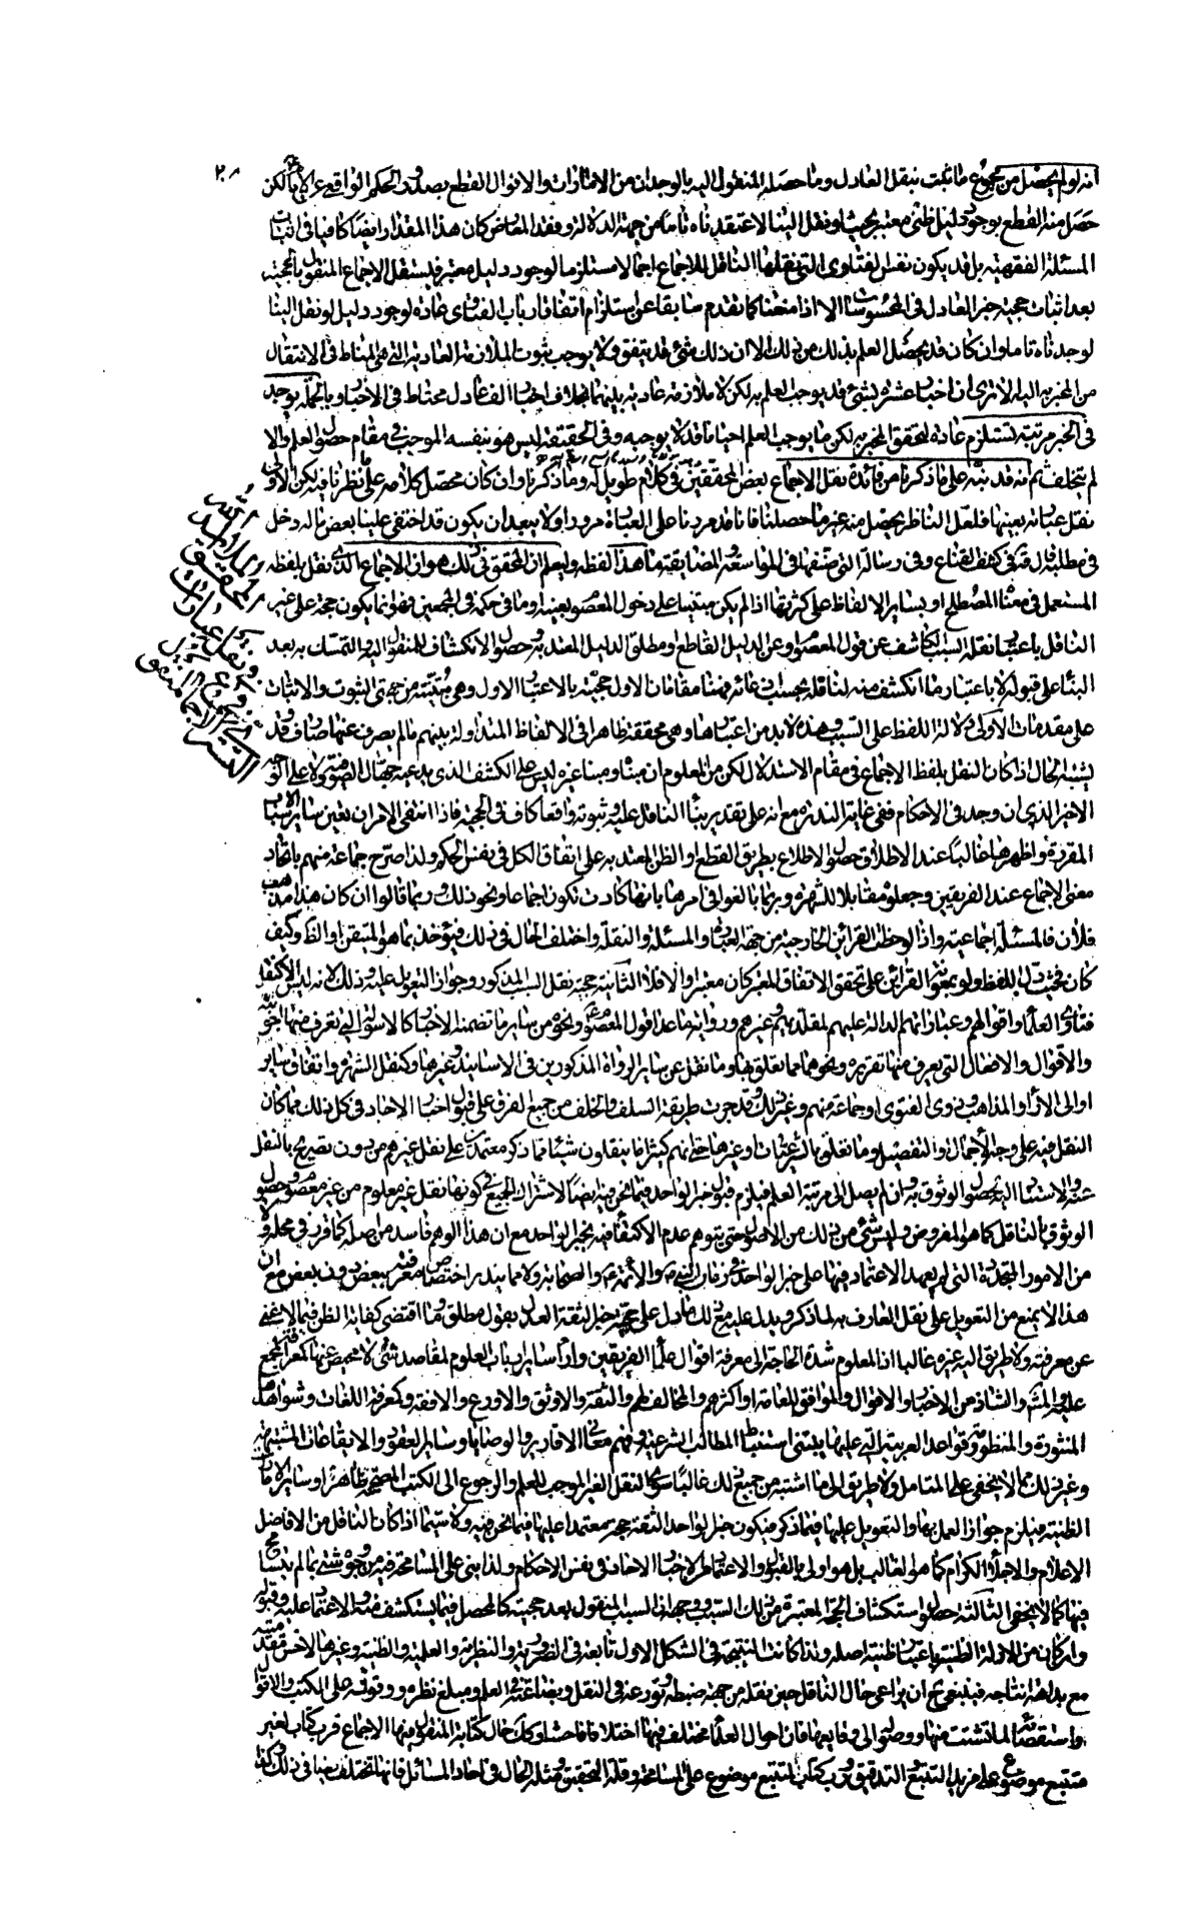 انه لو لم يحصل من مجموع ما ثبت بنقل العادل وما حصله المنقول اليه بالوجدان من الامارات والاقوال القطع بصدور الحكم الواقعى عن الامام لكن
حصل منه القطع بوجود دليل ظنى معتبر بحيث لو نقل الينا لاعتقدناه تاما من جهة الدلالة وفقد المعارض كان هذا المقدار ايضا كافيا فى اثبات
المسئلة الفقهية بل قد يكون نفس الفتاوى التى نقلها الناقل للاجماع اجمالا مستلزما لوجود دليل معتبر فيستقل الاجماع المنقول بالحجية
بعد اثبات حجية خبر العادل فى المحسوسات الا اذا منعنا كما تقدم سابقا عن استلزام اتفاق ارباب الفتاوى عادة لوجود دليل لو نقل الينا
لوجدناه تاما وان كان قد يحصل العلم بذلك من ذلك الا ان ذلك شئ قد يتفق ولا يوجب ثبوت الملازمة العادية التى هى المناط فى الانتقال
من المخبر به اليه الا ترى ان اخبار عشرة بشئ قد يوجب العلم به لكن لا ملازمة عادية بينهما بخلاف اخبار الف عادل محتاط فى الاخبار وبالجملة يوجد
فى الخبر مرتبة تستلزم عادة لتحقق المخبر به لكن ما يوجب العلم احيانا قد لا يوجبه وفى الحقيقة ليس هو بنفسه الموجب فى مقام حصول العلم والا
لم يتخلف ثم انه قد نبه على ما ذكرنا من فائدة نقل الاجماع بعض المحققين فى كلام طويل له وما ذكرنا وان كان محصل كلامه على ما نظرنا فيه لكن الاولى
نقل عبارته بعينها فلعل الناظر يحصل منه غير ما حصلنا فانا قد مررنا على العبارة مرورا ولا يبعد ان يكون قد اختفى علينا بعض ما له دخل
فى مطلبه قال قده فى كشف القناع وفى رسالته التى صنفها فى المواسعة والمضايقة ما هذا لفظه وليعلم ان المحقق فى ذلك هو ان الاجماع الذى نقل بلفظه
المستعمل فى معناه المصطلح او بساير الالفاظ على كثرتها اذا لم يكن مبتنيا على دخول المعصوم بعينه او ما فى حكمه فى المجمعين فهو انما يكون حجة على غير
الناقل باعتبار نقله السبب الكاشف عن قول المعصوم او عن الدليل القاطع او مطلق الدليل المعتد به وحصول الانكشاف للمنقول اليه والتمسك به بعد
البناء على قبوله لا باعتبار ما انكشف منه لناقله بحسب ادعائه فهنا مقامان الاول حجيته بالاعتبار الاول وهى مبتنية من جهتى الثبوت والاثبات
على مقدمات الاولى دلالة اللفظ على السبب وهذه لا بد من اعتبارها وهى محققة ظاهرا فى الالفاظ المتداولة بينهم ما لم يصرف عنها صارف وقد
يشتبه الحال اذا كان النقل بلفظ الاجماع فى مقام الاستدلال لكن من المعلوم ان مبناه ومبنى غيره ليس على الكشف الذى يدعيه جهال الصوفية ولا على الوجه
الاخير الذى ان وجد فى الاحكام ففى غاية الندرة مع انه على تقدير بناء الناقل عليه وثبوته واقعا كاف فى الحجية فاذا انتفى الامران تعين ساير الاسباب
المقررة واظهرها غالبا عند الاطلاق حصول الاطلاع بطريق القطع او الظن المعتد به على اتفاق الكل فى نفس الحكم ولذا صرح جماعة منهم باتحاد
معنى الاجماع عند الفريقين وجعلوه مقابلا للشهرة وربما بالغوا فى امرها بانها كادت تكون اجماعا ونحو ذلك وربما قالوا ان كان هذا مذهب
فلان فالمسئلة اجماعية واذا لوحظت القرائن الخارجية من جهة العبارة والمسئلة والنقلة واختلف الحال فى ذلك فيؤخذ بما هو المتيقن او الظاهر وكيف
كان فحيث دل اللفظ ولو بمعونة القرائن على تحقق الاتفاق المعتبر كان معتبرا والا فلا الثانية حجية نقل السبب المذكور وجواز التعويل عليه وذلك لانه ليس الا كنقل
فتاوى العلماء واقوالهم وعباراتهم الدالة عليها لمقلديهم وغيرهم ورواية ما عدا قول المعصوم ونحوه من ساير ما تضمنه الاخبار كالاسئلة التى تعرف منها اجوبته
والاقوال والافعال التى يعرف منها تقريره ونحوها مما تعلق بها وما نقل عن ساير الرواة المذكورين فى الاسانيد وغيرها وكنقل الشهرة واتفاق ساير
اولى الآراء والمذاهب وذوى الفتوى او جماعة منهم وغير ذلك وقد جرت طريقة السلف والخلف من جميع الفرق على قبول اخبار الآحاد فى كل ذلك مما كان
النقل فيه على وجه الاجمال او التفصيل وما تعلق بالشرعيات او غيرها حتى انهم كثيرا ما ينقلون شيئا مما ذكر معتمدين على نقل غيرهم من دون تصريح بالنقل
عنه والاستناد اليه لحصول الوثوق به وان لم يصل الى مرتبة العلم فيلزم قبول خبر الواحد فيما نحن فيه ايضا لاشتراك الجميع فى كونها نقل غير معلوم من غير معصوم وحصول
الوثوق بالناقل كما هو المفروض وليس شئ من ذلك من الاصول حتى يتوهم عدم الاكتفاء فيه بخبر الواحد مع ان هذا الوهم فاسد من اصله كما قرر فى محله ولا
من الامور المتجددة التى لم يعهد الاعتماد فيها على خبر الواحد فى زمان النبى والائمة والصحابة ولا مما يندر اختصاص معرفته ببعض دون بعض مع ان
هذا لا يمنع من التعويل على نقل العارف به لما ذكر ويدل عليه مع ذلك ما دل على حجية خبر الثقة العدل بقول مطلق وما اقتضى كفاية الظن فيما لا غنى
عن معرفته ولا طريق اليه غيره غالبا اذ المعلوم شدة الحاجة الى معرفة اقوال علماء الفريقين وآراء ساير ارباب العلوم لمقاصد شتى لا محيص عنها كمعرفة المجمع
عليه والمشهور والشاذ من الاخبار والاقوال والموافق للعامة او اكثرهم والمخالف لهم والثقة والاوثق والاورع والافقه وكمعرفة اللغات وشواهدها
المنثورة والمنظومة وقواعد العربية التى عليها يبتنى استنباط المطالب الشرعية وفهم معانى الاقارير والوصايا وساير العقود والايقاعات المشتبهة
وغير ذلك مما لا يخفى على المتامل ولا طريق الى ما اشتبه من جميع ذلك غالبا سوى النقل الغير الموجب للعلم والرجوع الى الكتب المصححة ظاهرا وساير الامارات
الظنية فيلزم جواز العمل بها والتعويل عليها فيما ذكر فيكون خبر الواحد الثقة حجة معتمدا عليها فيما نحن فيه ولا سيما اذا كان الناقل من الافاضل
الاعلام والاجلاء الكرام كما هو الغالب بل هو اولى بالقبول والاعتماد من اخبار الآحاد فى نفس الاحكام ولذا بنى على المسامحة فيه من وجوه شتى بما لم يتسامح
فيها كما لا يخفى الثالثة حصول استكشاف الحجة المعتبرة من ذلك السبب ووجهه ان السبب المنقول بعد حجيته كالمحصل فيما يستكشف منه والاعتماد عليه وقبوله
وان كان من الادلة الظنية باعتبار ظنية اصله ولذا كانت النتيجة فى الشكل الاول تابعة فى الضرورية والنظرية والعلمية والظنية وغيرها لاخس مقدمتيه
مع بداهة انتاجه فينبغى ح ان يراعى حال الناقل حين نقله من جهة ضبطه وتورعه فى النقل وبضاعته فى العلم ومبلغ نظره ووقوفه على الكتب والاقوال
واستقصائه لما تشتت منها ووصوله الى وقايعها فان احوال العلماء مختلف فيها اختلافا فاحشا وكذلك حال كتابه المنقول فيها الاجماع فرب كتاب لغير
متتبع موضوع على مزيد التتبع والتدقيق ورب كتاب لمتتبع موضوع على المسامحة وقلة التحقيق ومثله الحال فى آحاد المسائل فانها تختلف ايضا فى ذلك وكذا
٢٠٨